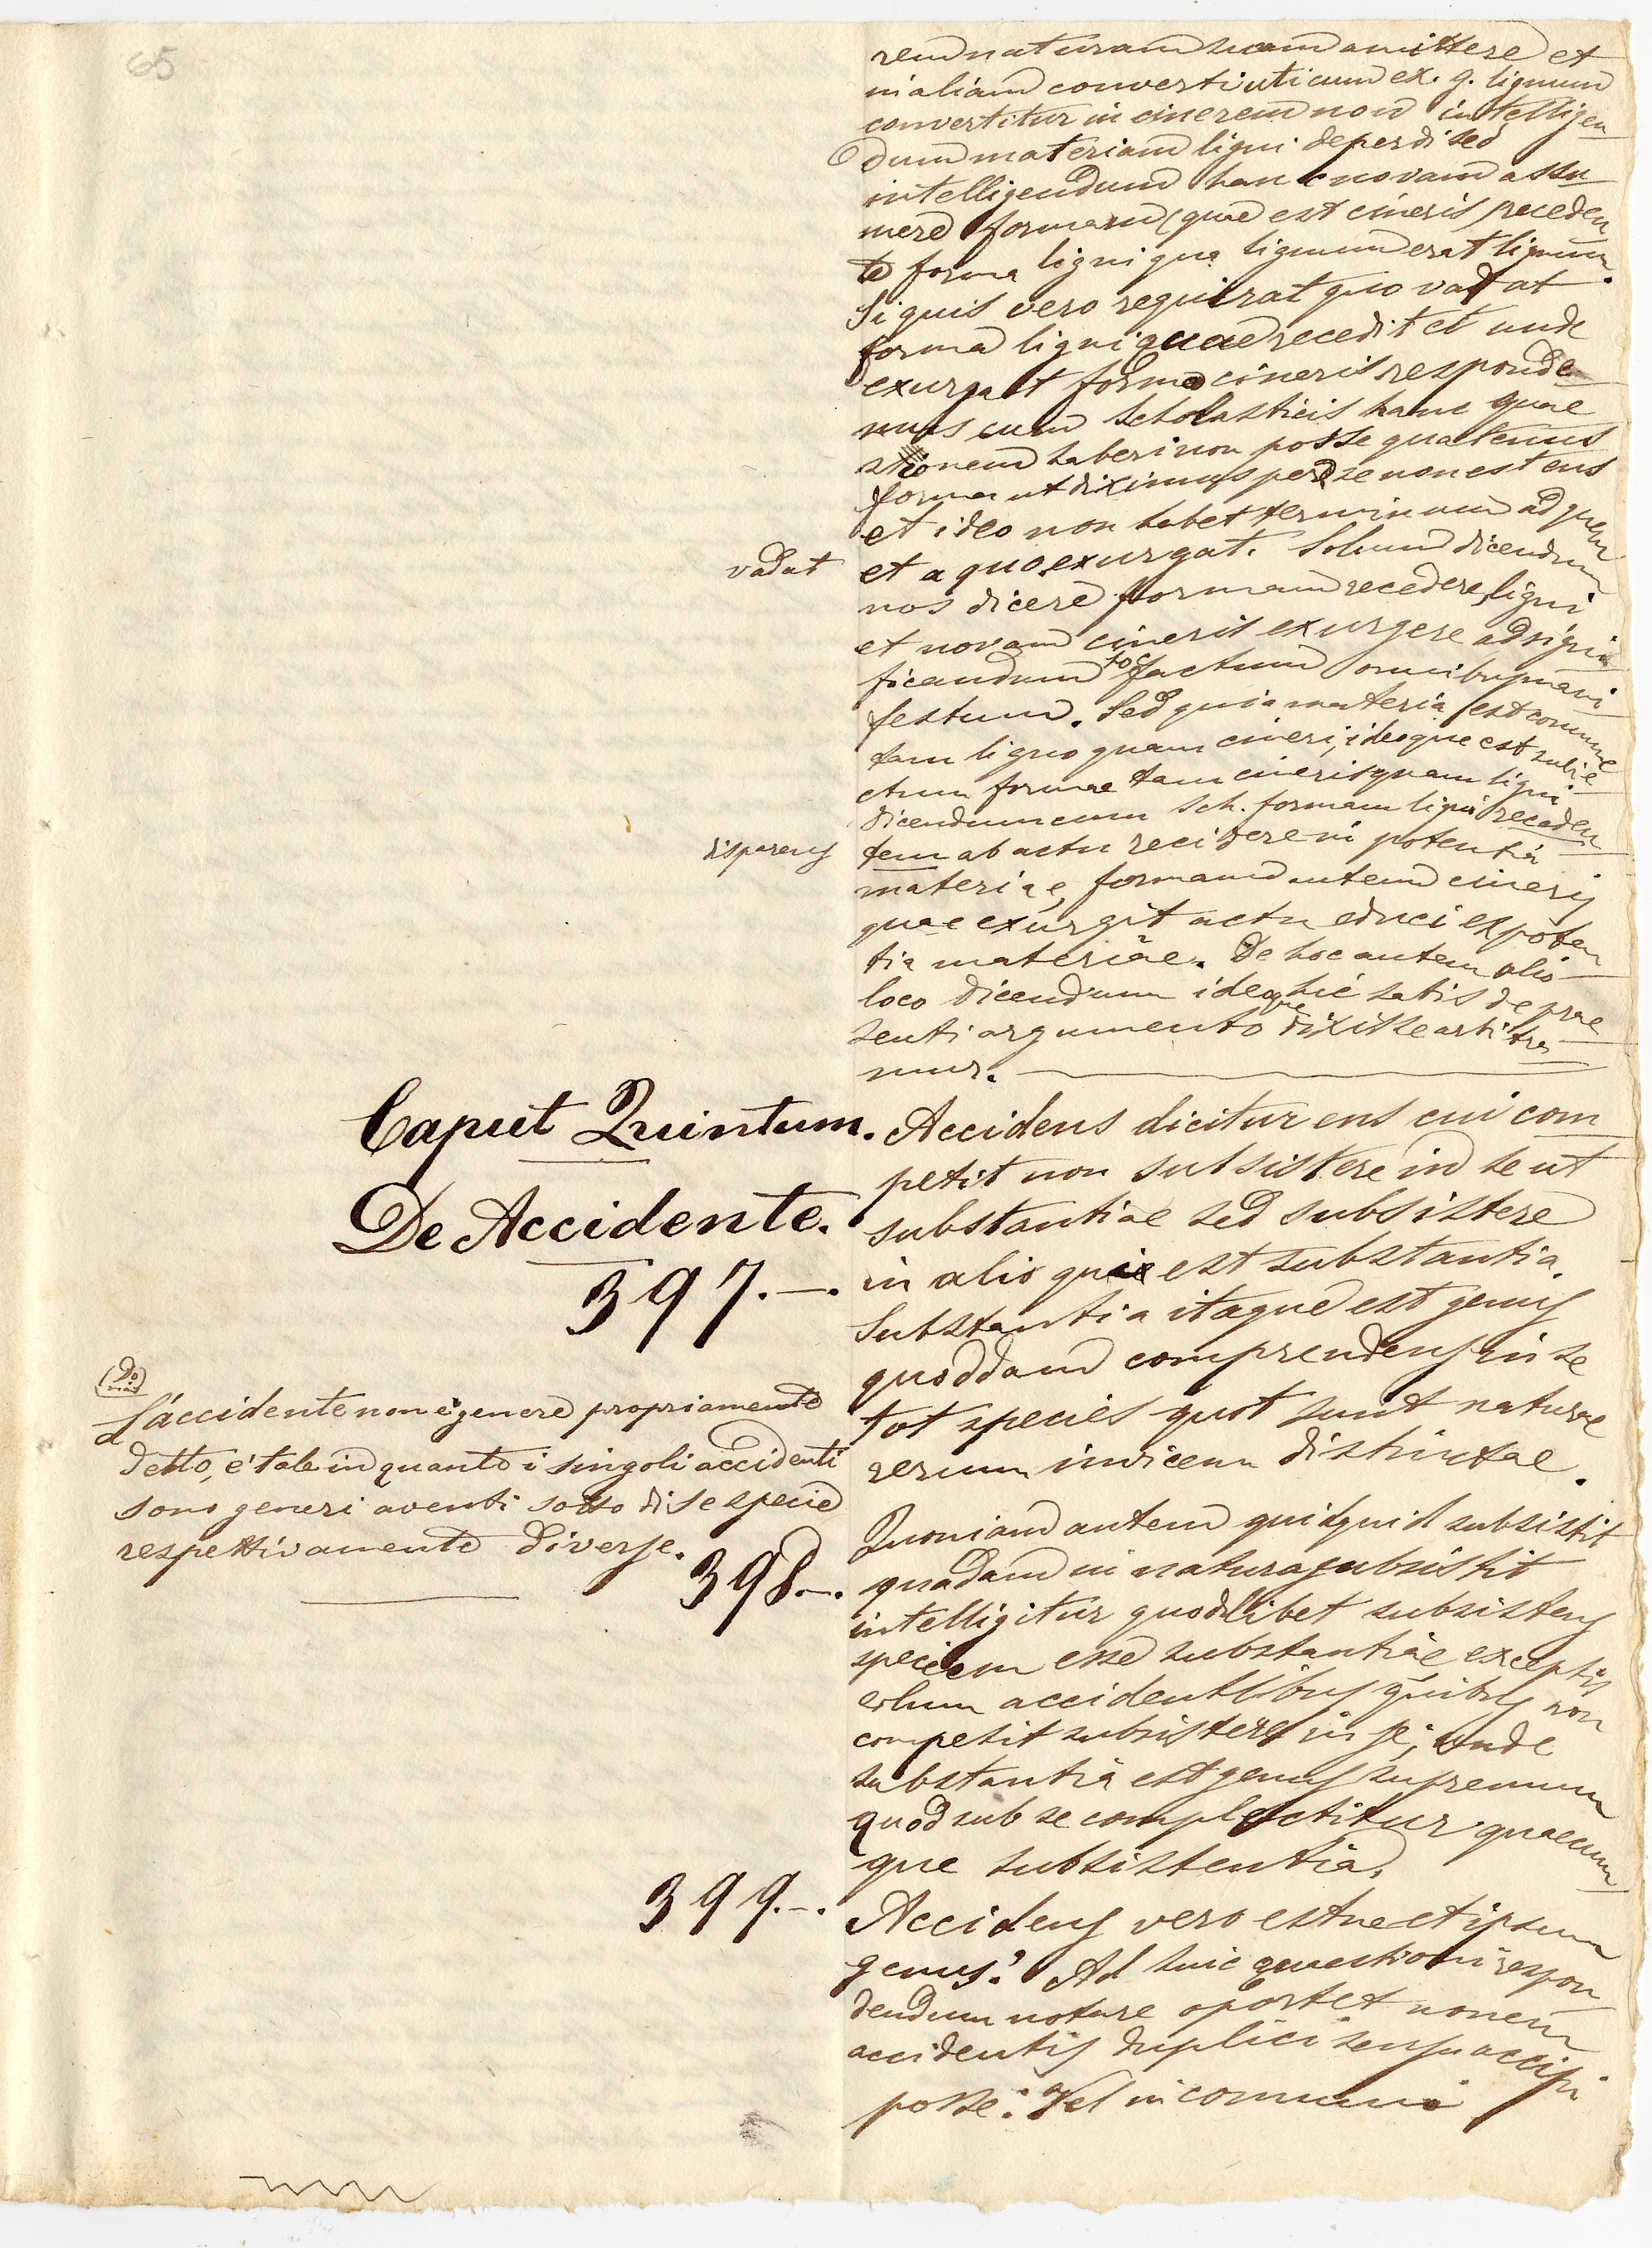 65
rem naturam suam amittere et
in aliam converti uti cum ex. g. lignum
convertitur in cinerem non intelligen
dum materiam ligni deperdi sed
intelligendum hanc novam assu
mere formam quae est cineris receden
te forma ligni qua lignum erat lignum.
Si quis vero requirat quo vadat
forma ligni quae recedit et unde
exurgat forma cineris responde
mus cum Scholasticis hanc quae
stionem haberi non posse quatenus
forma ut diximus per se non est ens
et ideo non habet terminum ad quem
vadat
et a quo exurgat. Solum dicendum
nos dicere formam recedere ligni
et novam cineris exurgere ad signi
ficandum hoc factum omnibus mani
festum. Sed quia materia est comune
tam ligno quam cineri, ideoque est subie
ctum formae tam cineris quam ligni
dicendum cum Sch. formam ligni receden
disparens
tem ab actu recidere in potentia
materiae, formam autem cineris
quae exurgit actu educi ex poten
tia materiae. De hoc autem alio
loco dicendum ideoque hic satis de prae
senti argumento dixisse arbitra
mur.
Caput Quintum.
De Accidente.
397.—.
Accidens dicitur ens cui com
petit non subsistere in se ut
substantiae sed subsistere
in alio quae est substantia.
Substantia itaque est genus
quoddam comprendens in se
tot species quot sunt naturae
rerum invicem distinctae.
L'accidente non è genere propriamente
detto, e' tale in quanto i singoli accidenti
sono generi aventi sotto di se specie
respettivamente diverse.
398.—.
Quoniam autem quidquid subsistit
quadam in natura subsistit
intelligitur quodlibet subsistens
speciem esse substantiae exceptis
solum accidentibus quibus non
competit subsistere in se; unde
substantia est genus supremum
quod sub se complectitur quaecum
que subsistentia.
399.—.
Accidens vero estne et ipsum
genus? Ad huic quaestioni respon
dendum notare oportet nomen
accidentis duplici sensu accipi
posse: Vel in comuni